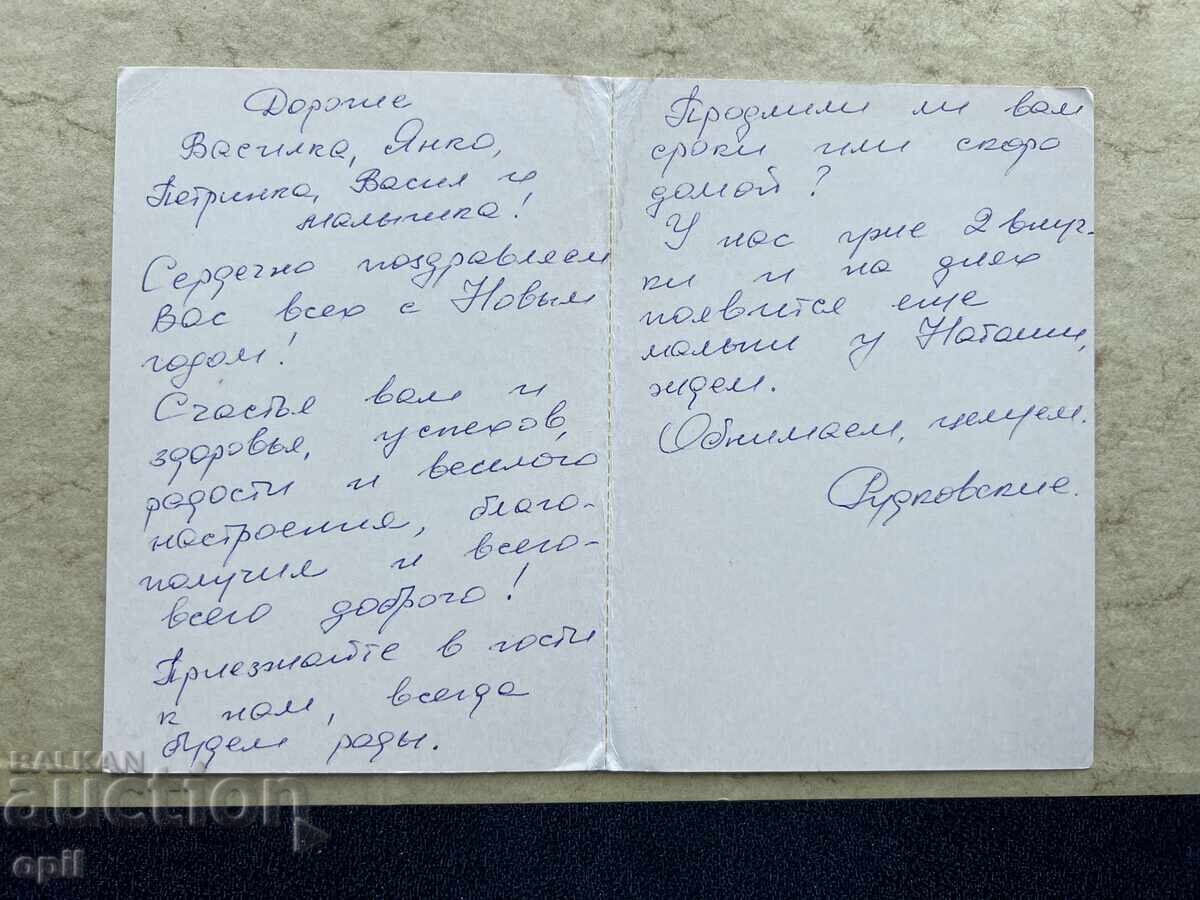 Дорогие
Василка, Янко,
Петринка, Васил и
малышка!
Сердечно поздравляем
Вас всех с Новым
годом!
Счастья вам и
здоровья, успехов,
радости и веселого
настроения, благо-
получия и всего-
всего доброго!
Приезжайте в гости
к нам, всегда
будем рады.
Продлили ли вам
сроки или скоро
домой?
У нас уже 2 внуч-
ки и на днях
появится еще
малыш у Наташи,
ждем.
Обнимаем, целуем.
Рудковские.
BALKAN
auction
opil